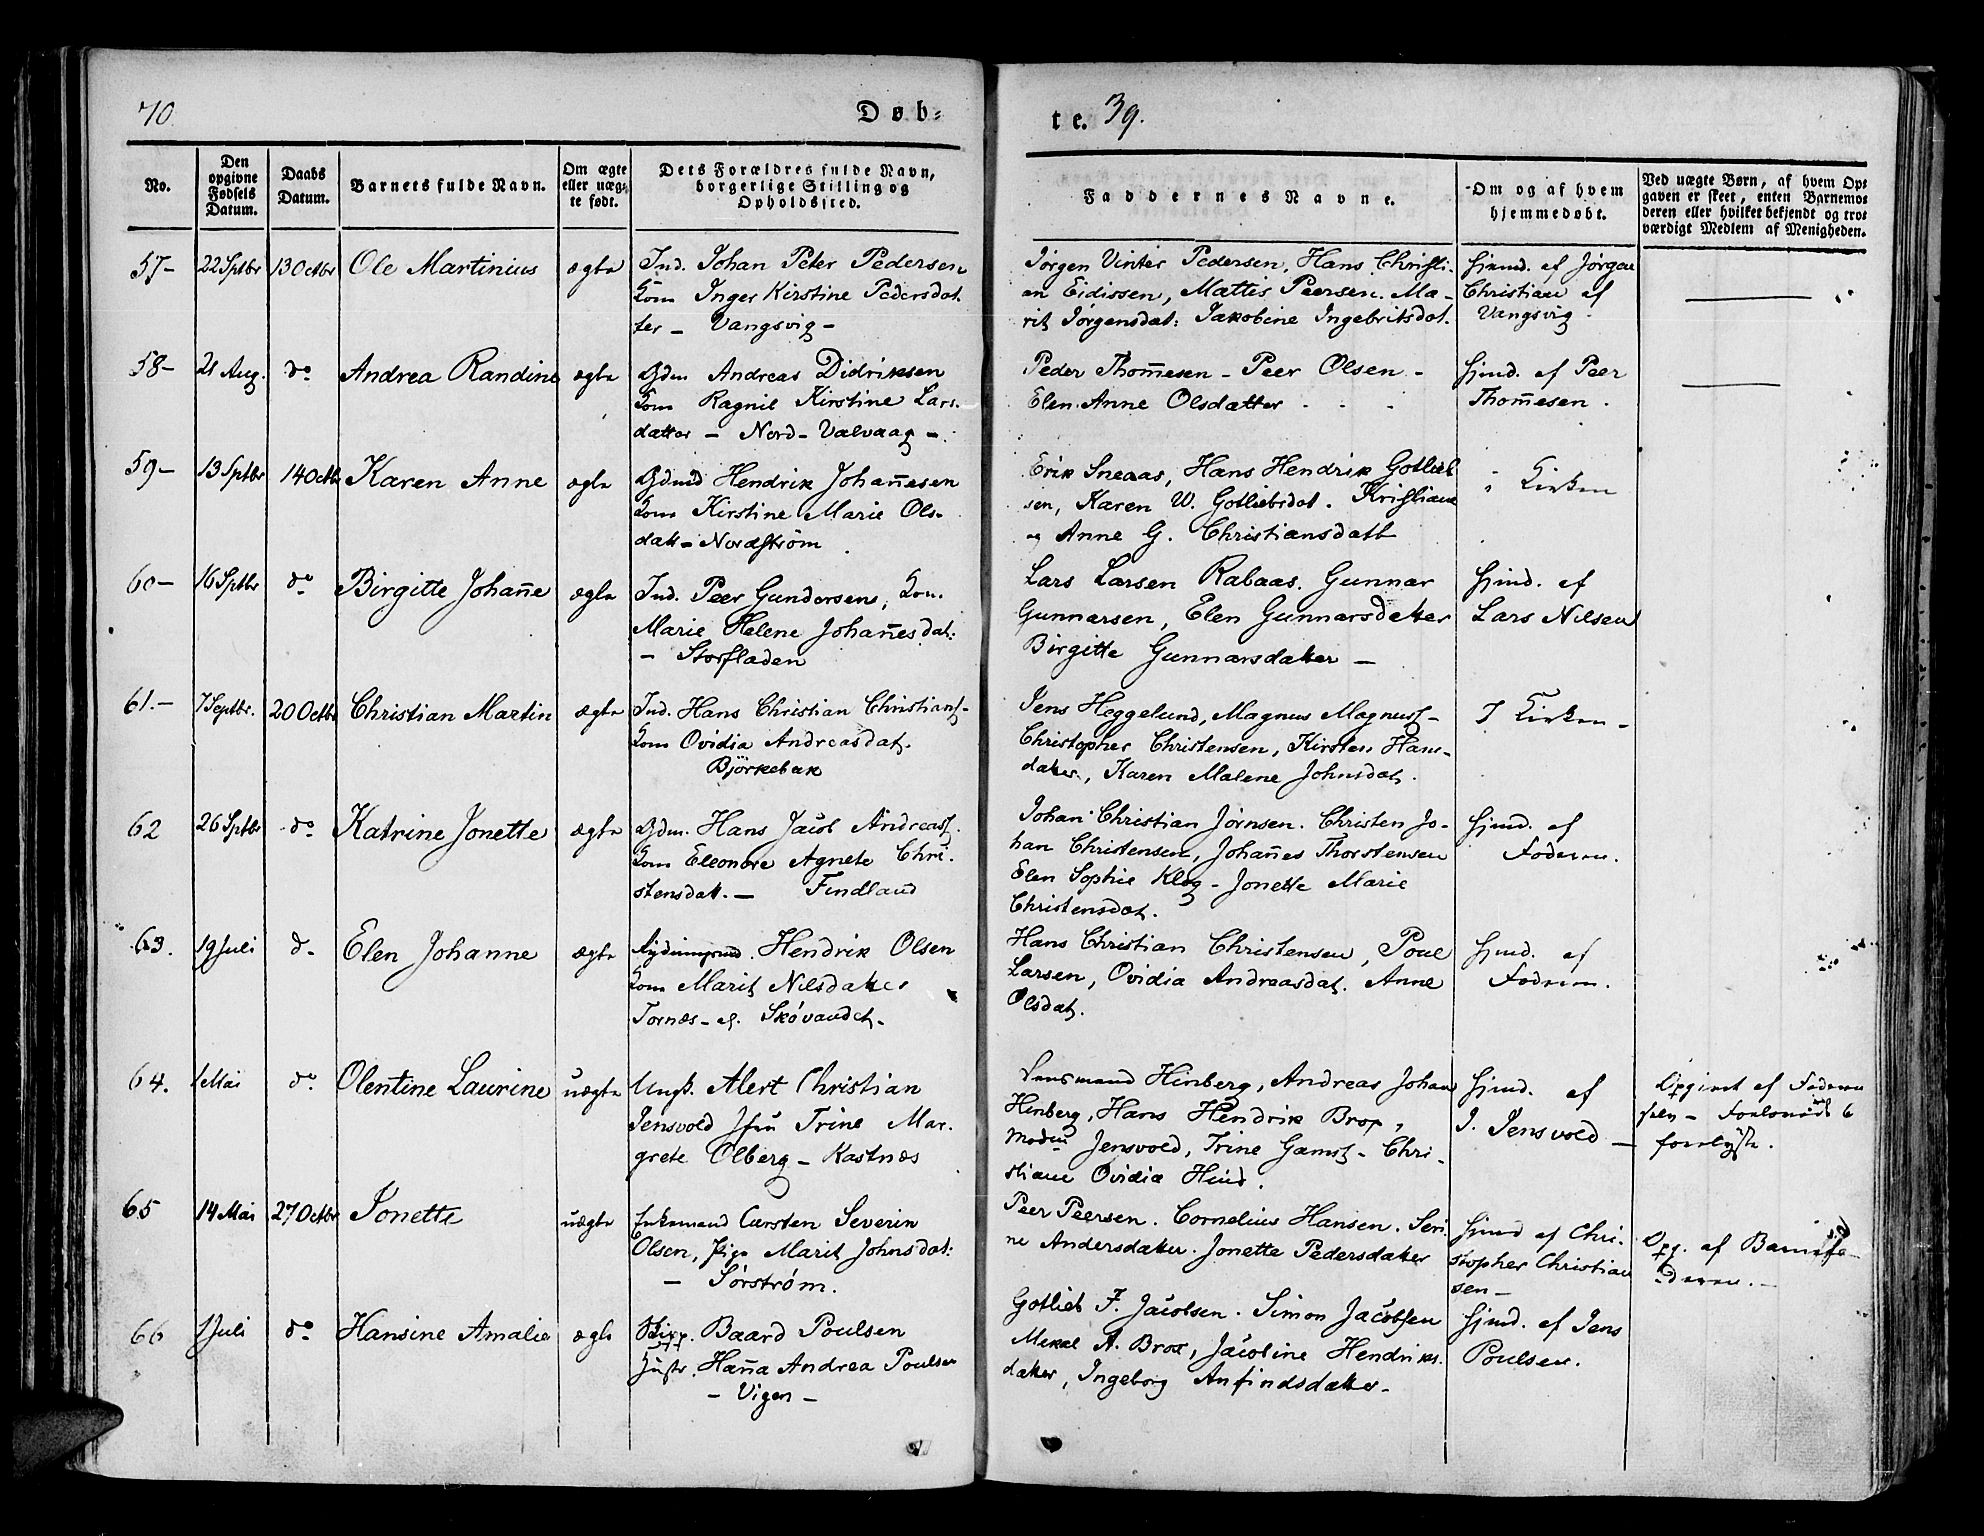 70.
Døb=
te. 39.
No.
Den opgivne Fødsels Datum.
Daabs Datum.
Barnets fulde Navn.
Om ægte eller uægte født.
Dets Forældres fulde Navn, borgerlige Stilling og Opholdssted.
Faddernes Navne.
Om og af hvem hjemmedøbt.
Ved uægte Børn, af hvem Op=
gaven er skeet, enten Barnemo=
deren eller hvilket bekjendt og tro=
værdigt Medlem af Menigheden.
57- 22 Sptbr 13 Octbr Ole Martinius ægte
Ind. Johan Peter Pedersen
Kone Inger Kirstine Pedersdat
ter - Vangsvig -
Jørgen Vinter Pedersen, Hans Christi-
an Eidissen, Mattis Peersen. Ma-
rit Jørgensdat: Jakobine Ingebritsdat.
Hjmd. af Jørgen
Christian af
Vangsvig.
58- 21 Aug. do Andrea Randine ægte
Gdm Andreas Didriksen
Kone Ragnil Kirstine Lars.
datter - Nord-Valvaag -
Peder Thomesen - Peer Olsen -
Elen Anne Olsdatter
Hjmd. af Peer
Thomesen.
59- 13 Sptbr 14 Octbr Karen Anne ægte
Gdmd Hendrik Johannesen
Kone Kirstine Marie Ols-
datt - Nordstrøm
Erik Sneaas, Hans Hendrik Gotlieb
sen, Karen W. Gotliebsdat. Kristiane
og Anne G. Christiansdatt
i Kirken
60- 16 Sptbr do Birgitte Johanne ægte
Ind. Peer Gundersens, Kone
Marie Helene Johannesdat:
- Storfladen
Lars Larsen Rabaas. Gunnar
Gunnarsen, Elen Gunnarsdatter
Birgitte Gunnarsdatter -
Hjmd. af
Lars Nilsen
61.- 7 Septbr. 20 Octbr Christian Martin ægte
Ind. Hans Christian Christians-
Kone Ovidia Andreasdat.
Bjørkebak
Jens Heggelund, Magnus Magnuss-
Christopher Christensen, Kirsten Hans-
datter, Karen Malene Johnsdat.
I Kirken -
62 26 Sptbr do Katrine Jonette ægte
Gdm. Hans Jacob Andreass.
Kone Eleonore Agnete Chri-
stensdatt. - Findland
Johan Christian Jørnsen. Christen Jo-
han Christensen, Johannes Thorstensen
Elen Sophie Klog - Jonette Marie
Christensdat.
Hjmd. af
Faderen.
63. 19 Juli do Elen Johanne ægte
Rydningsmd. Hendrik Olsen
Kone Marit Nilsdatter
Tornæs - Skøvandet -
Hans Christian Christensen, Poul
Larsen, Ovidia Andreasdat. Anne
Olsdat.
Hjmd. af
Faderen.
64. 1 Mai do Olentine Laurine uægte
Ungk. Alert Christian
Jensvold Jfru Trine Mar-
grete Olberg - Kastnæs
Lensmand Hinberg, Andreas Johan
Hinberg, Hans Hendrik Brox,
Jensvold, Trine Gams - Chri-
stiane Ovidia Hind.
Hjmd. af
J. Jensvold -
Opgivet af Faderen
selv -
65 14 Mai 27 Octbr Jonette uægte
Enkemand Carsten Severin
Olsen, Pige Marit Johnsdat:
- Sørstrøm.
Peer Peersen. Cornelius Hansen. Seri-
ne Andersdatter. Jonette Pedersdatter
Hjmd af Chri-
stopher Christian
sen -
Opg. af Barnefa-
deren. -
66 1 Juli do Hansine Amalie ægte
Baard Poulsen
Hustr. Hanna Andrea Poulsen
- Vigen -
Gotlieb F. Jacobsen. Simon Jacobsen
Mekel A. Brox, Jacobine Hendriks.
datter, Ingeborg Anfindsdatter -
Hjmd. af Jens
Poulsen.